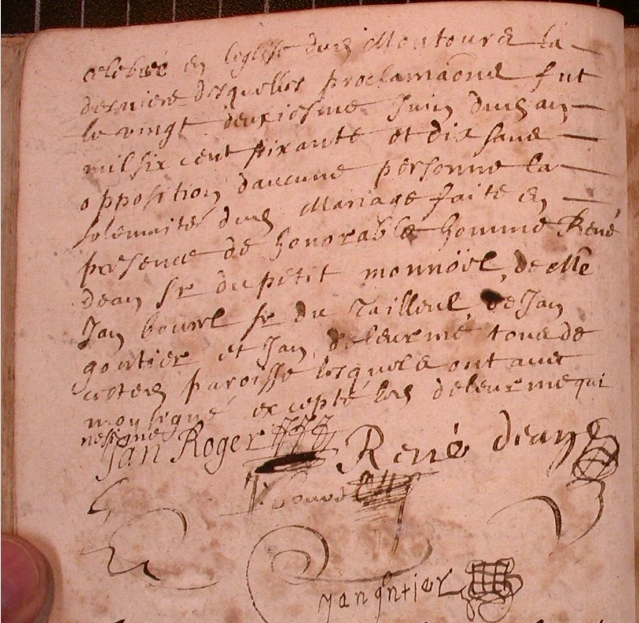 celebréé en leglise dud Montours la
derniere desquelles proclamaõns fut
le vingt deuxiesme Juin dud an
mil six cent soixante et dix sans
opposition daucune personne la
solemnité dud Mariage faite en
presence de honorable homme René
dean Sr du petit monnoël, de Me
Jan bourel Sr du Tailleul, de Jan
gontier et Jan deleurme tous de
cette paroisse lesquels ont avec
moy signé excepté led deleurme qui
ne signe
Jan Roger René dean
Jan gntier